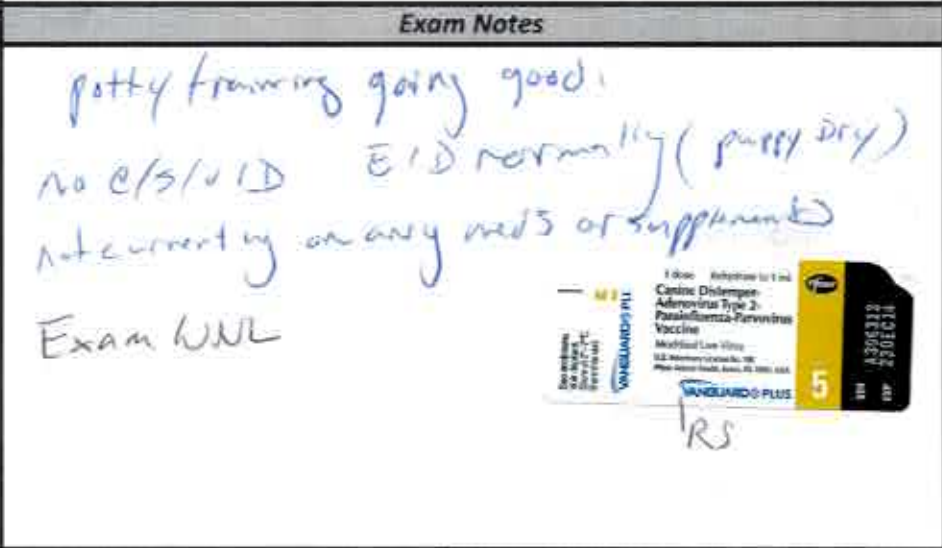 Exam Notes
potty training going good.
no c/s/v/D E/D normally (puppy Dry)
not currently on any meds or supplements
Exam WNL
1 dose Rehydrate to 1 mL
Canine Distemper-
Adenovirus Type 2-
Parainfluenza-Parvovirus
Vaccine
Modified Live Virus
VANGUARD® PLUS
5
Pfizer
VANGUARD® PLU
SER A306318
EXP 23DEC14
RS